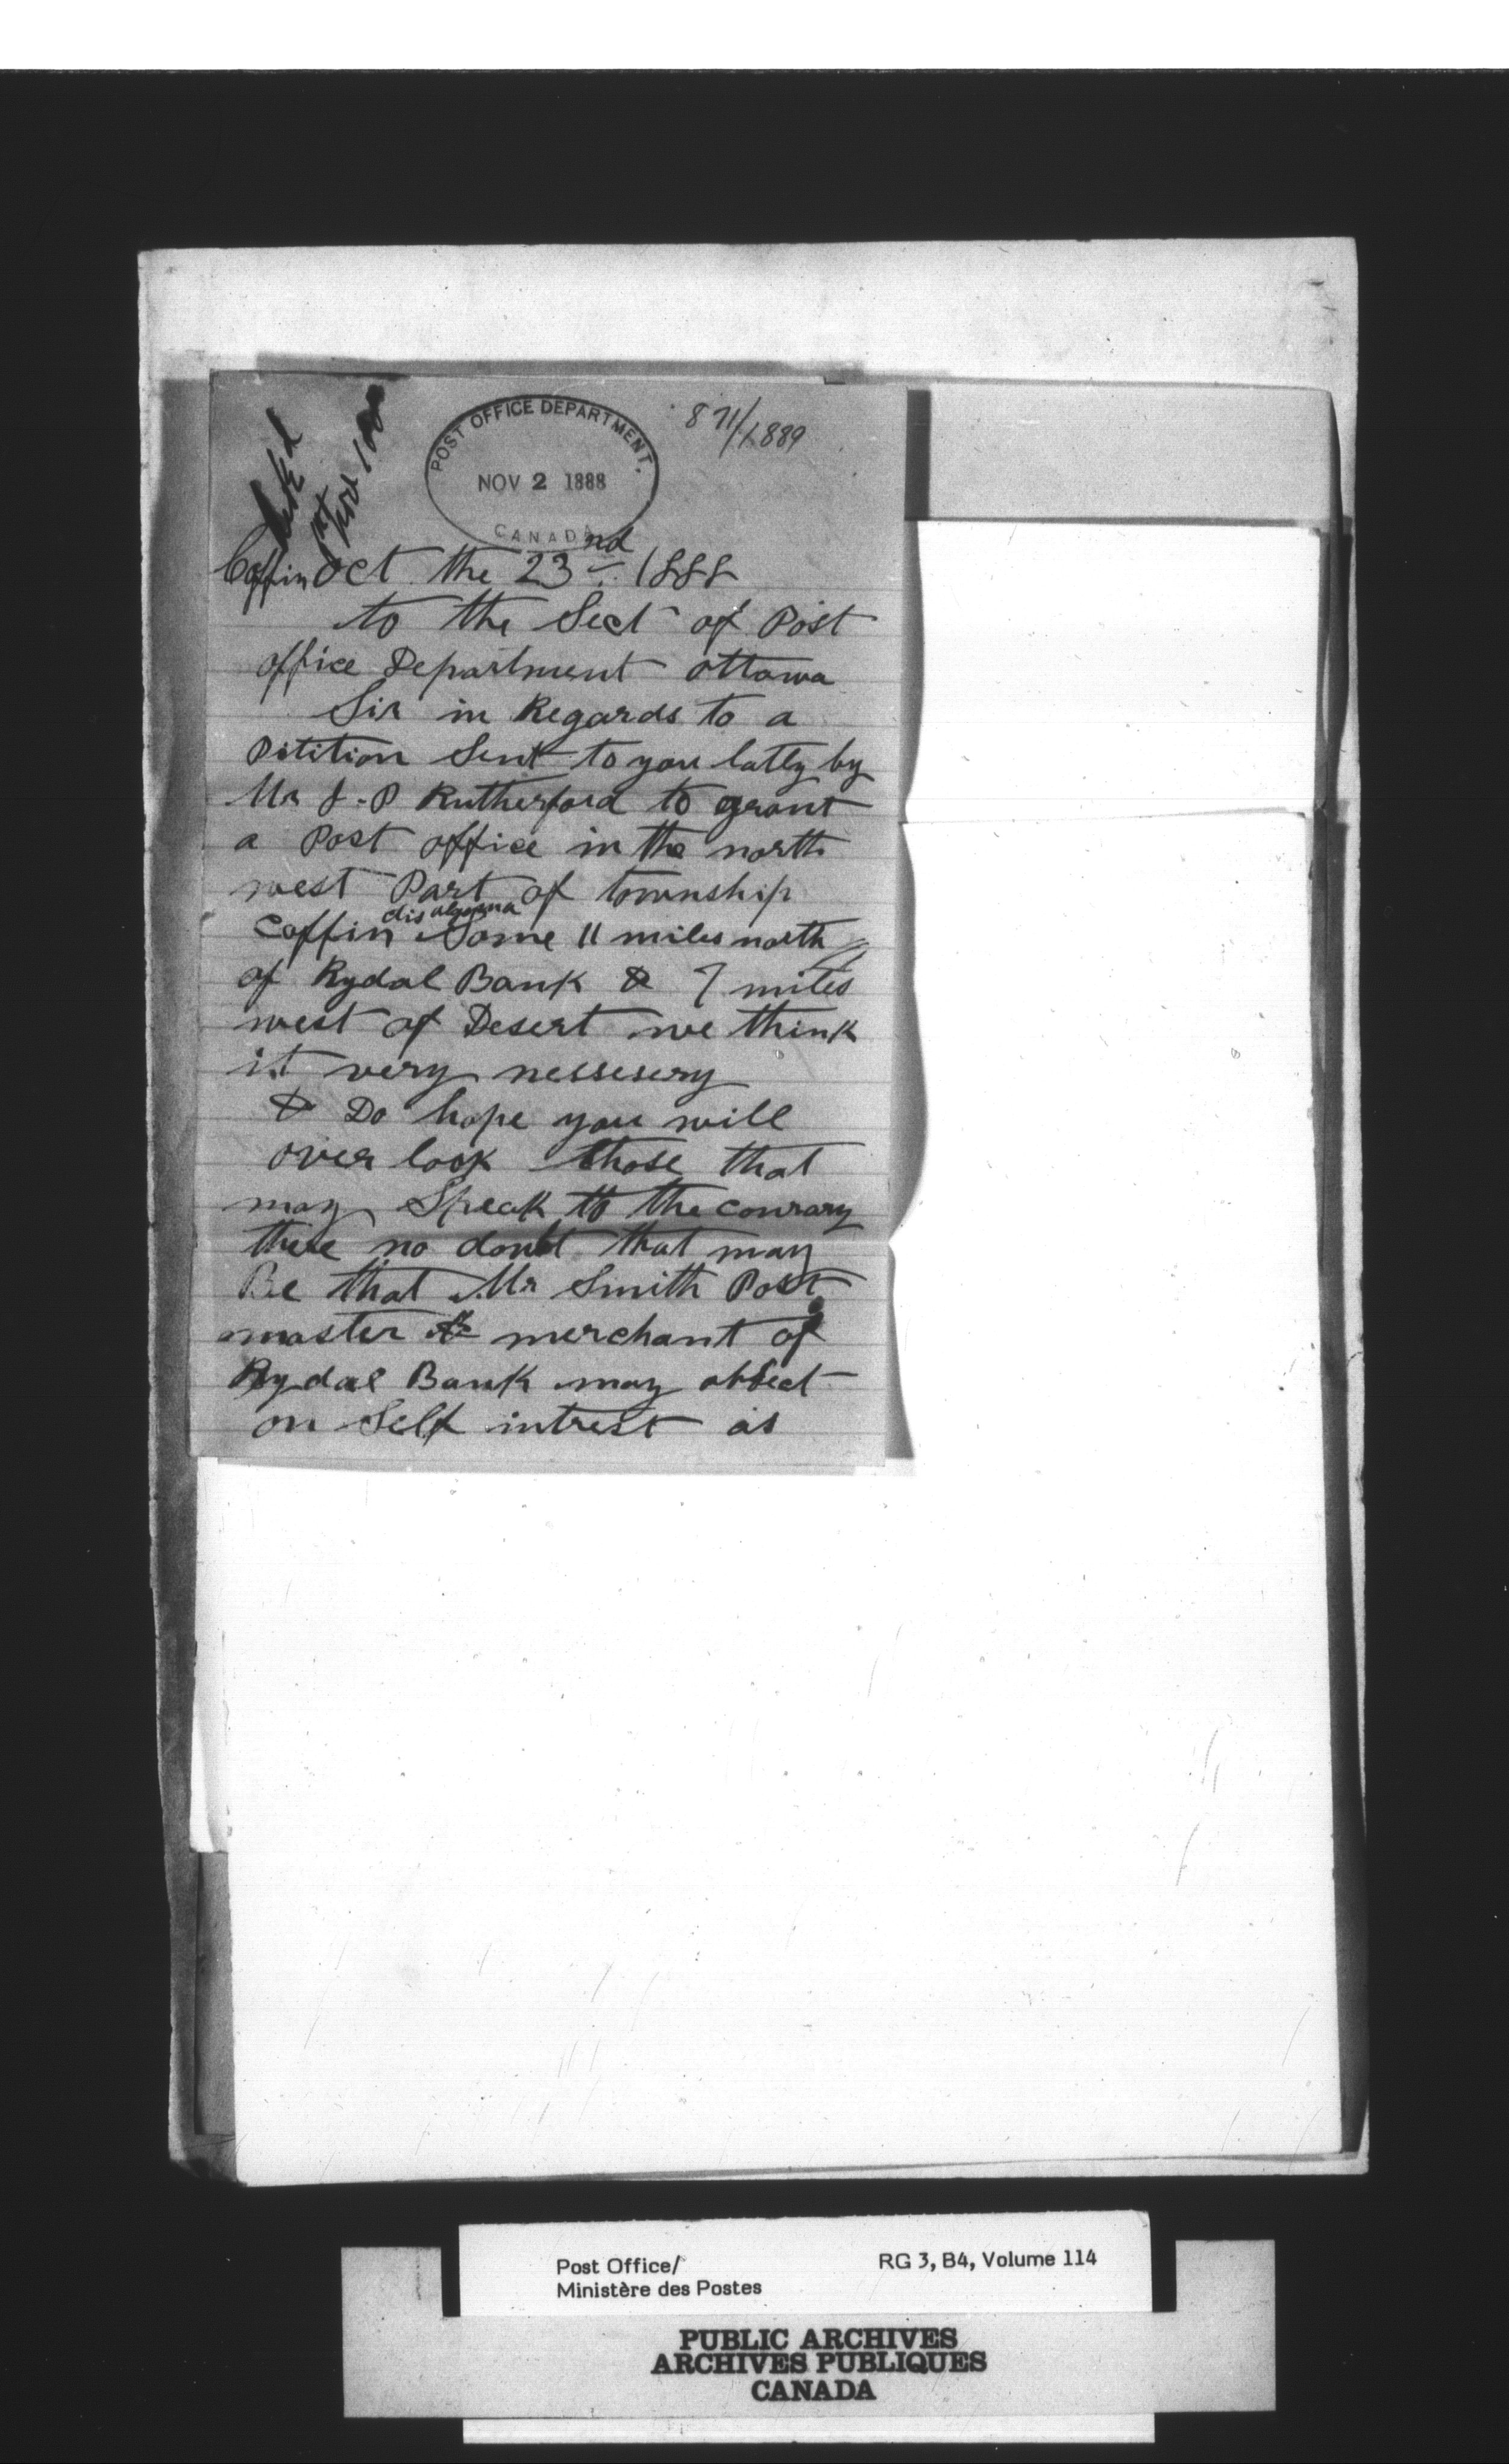 POST OFFICE DEPARTMENT.
NOV 2 1888
CANADA
871/1889
Coffin Oct the 23nd 1888
to the Sect of Post
office Department ottawa
Sir in Regards to a
Petition Sent to you latly by
Mr J. P Rutherford to grant
a Post office in the north
west Part of township
Coffin dis algoma Some 11 miles north
of Rydal Bank & 7 miles
west of Desert we think
it very nessesery
& Do hope you will
over look those that
may Speak to the conrary
there no doubt that may
Be that Mr Smith Post
master & merchant of
Rydal Bank may object
on Self intrest as
Post Office/
Ministère des Postes
RG 3, B4, Volume 114
PUBLIC ARCHIVES
ARCHIVES PUBLIQUES
CANADA